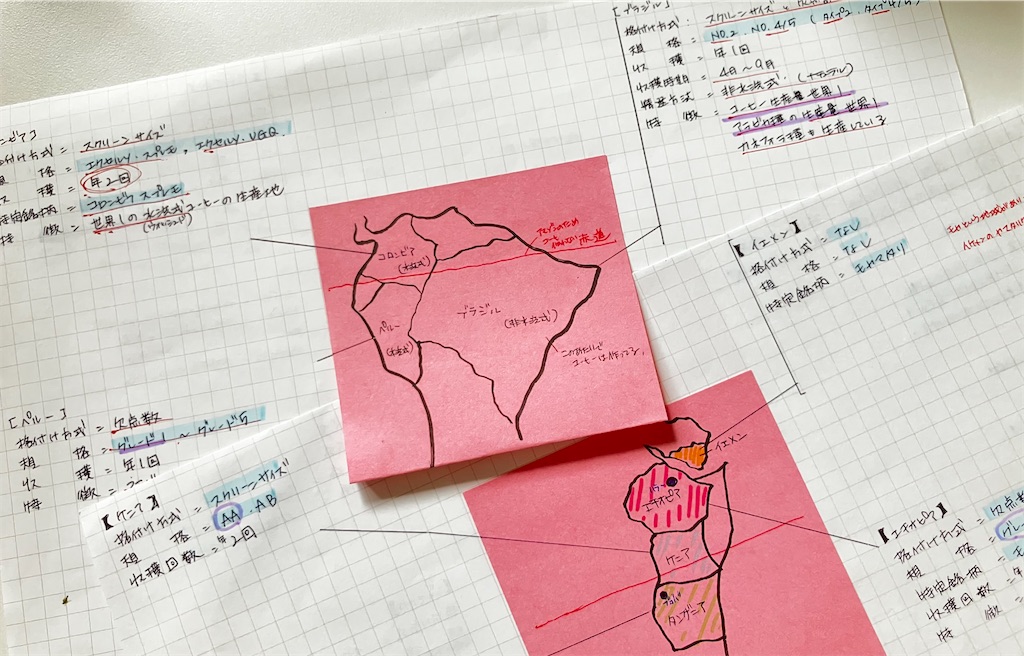 [ブラジル]
格付け方式: スクリーンサイズ
規 格 = NO.2. NO.4/5 (タイプ2. タイプ4/5)
収 穫 = 年1回
収穫時期 = 4月~9月
精製方式 = 非水洗式. (ナチュラル)
特 徴 = コーヒー生産量世界1
アラビカ種の生産量世界1
カネフォラ種も生産している
ンビア]
格付け方式 = スクリーンサイズ
規 格 = エクセルソ. スプレモ, エクセルソ. UGQ
収 穫 = 年2回
特定銘柄 = コロンビア スプレモ
特 徴 = 世界1の水洗式コーヒーの生産地
(ウォッシュド)
コロンビア
(水洗式)
赤道
ブラジル
(非水洗式)
ペルー
(水洗式)
このあたりで
コーヒーは作ってる。
【イエメン】
格付け方式 = なし
規 格 = なし
特定銘柄 = モカマタリ
[ペルー]
格付け方式 = 欠点数
規 格 = グレード1 ~ グレード5
収 穫 = 年1回
特 徴 =
【ケニア】
格付け方式 = スクリーンサイズ
規 格 = AA. AB
収穫回数 = 年2回
イエメン
エチオピア
ケニア
タンザニア
【エチオピア】
格付け方式 = 欠点数
規 格 = グレー
特定銘柄 = モ
収穫回数 = 年
特 徴 =